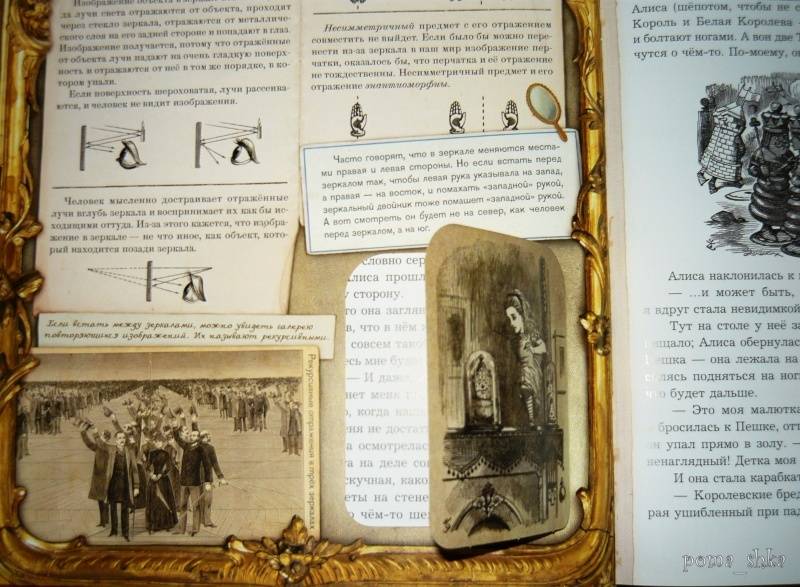 Изображение объекта в зеркале
ла лучи света отражаются от объекта, проходят
через стекло зеркала, отражаются от металличес-
кого слоя на его задней стороне и попадают в глаз.
Изображение получается, потому что отражённые
от объекта лучи падают на очень гладкую поверх-
ность и отражаются от неё в том же порядке, в ко-
тором упали.
Если поверхность шероховатая, лучи рассеива-
ются, и человек не видит изображения.
Человек мысленно достраивает отражённые
лучи вглубь зеркала и воспринимает их как бы ис-
ходящими оттуда. Из-за этого кажется, что изобра-
жение в зеркале — не что иное, как объект, кото-
рый находится позади зеркала.
Если встать между зеркалами, можно увидеть галерею
повторяющихся изображений. Их называют рекурсивными.
Рекурсивные отражения в трёх зеркалах
Несимметричный предмет с его отражением
совместить не выйдет. Если было бы можно пере-
нести из-за зеркала в наш мир изображение пер-
чатки, оказалось бы, что перчатка и её отражение
не тождественны. Несимметричный предмет и его
отражение энантиоморфны.
Часто говорят, что в зеркале меняются места-
ми правая и левая стороны. Но если встать перед
зеркалом так, чтобы левая рука указывала на запад,
а правая — на восток, и помахать «западной» рукой,
зеркальный двойник тоже помашет «западной» рукой.
А вот смотреть он будет не на север, как человек
перед зеркалом, а на юг.
словно сер
Алиса прошл
у сторону.
то она заглян
в, что в нём
совсем тако
есь мне буд
— И даже,
нет меня
о, когда наш
еня не достат
а осмотрелас
а на деле со
скучная, како
еты на стене
о чём-то ше
Алиса (шёпотом, чтобы не с
Король и Белая Королева
и болтают ногами. А вон две Т
чутся о чём-то. По-моему, он
Алиса наклонилась к
— ...и может быть,
я вдруг стала невидимкой
Тут на столе у неё за
пищало; Алиса обернулас
Пешка — она лежала на
лясь подняться на ног
что будет дальше.
— Это моя малютка
бросилась к Пешке, отт
он упал прямо в золу. —
ненаглядный! Детка моя
И она стала карабкат
— Королевские бред
рая ушибленный при пад
poma_shka